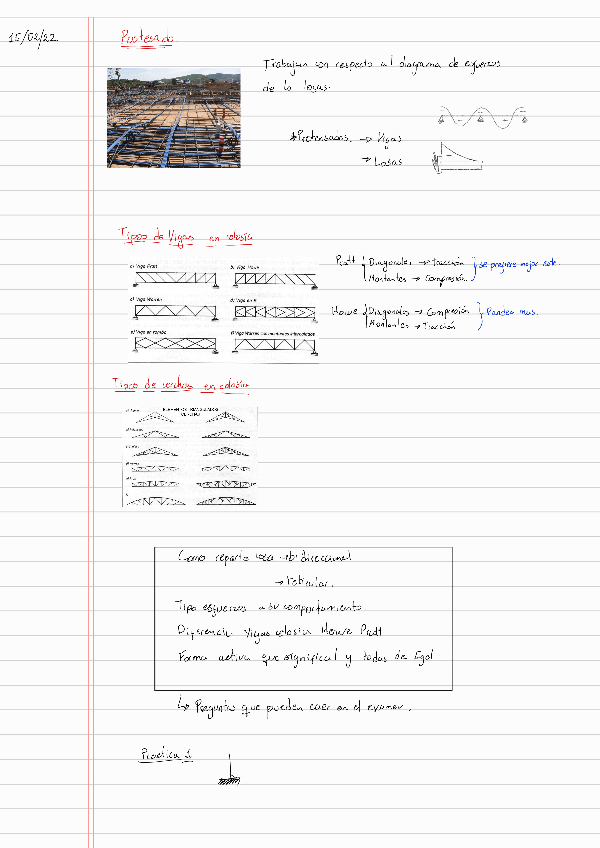 15/02/22
Postesado
Trabajan con respecto al diagrama de esfuerzos
de la losas.
*Pretensados. → Vigas
→ Losas
Tipos de Vigas en celosía
a) Viga Pratt
b) Viga Howe
c) Viga Warren
d) Viga en K
e) Viga en rombo
f) Viga Warren con montantes intercalados
Pratt { Diagonales → Tracción
Montantes → Compresión } Se prefiere mejor este.
Howe { Diagonales → Compresión
Montantes → Tracción } Pandea mas.
Tipos de cerchas en celosía
ELEMENTOS TRIANGULADOS
Como reparte losa → bidireccional
→ reticular.
Tipo esfuerzos a su comportamiento
Diferencia Vigas celosia Howe Pratt
Forma activa que significa? y todas de Egol
↳ Preguntas que pueden caer en el examen.
Practica 1